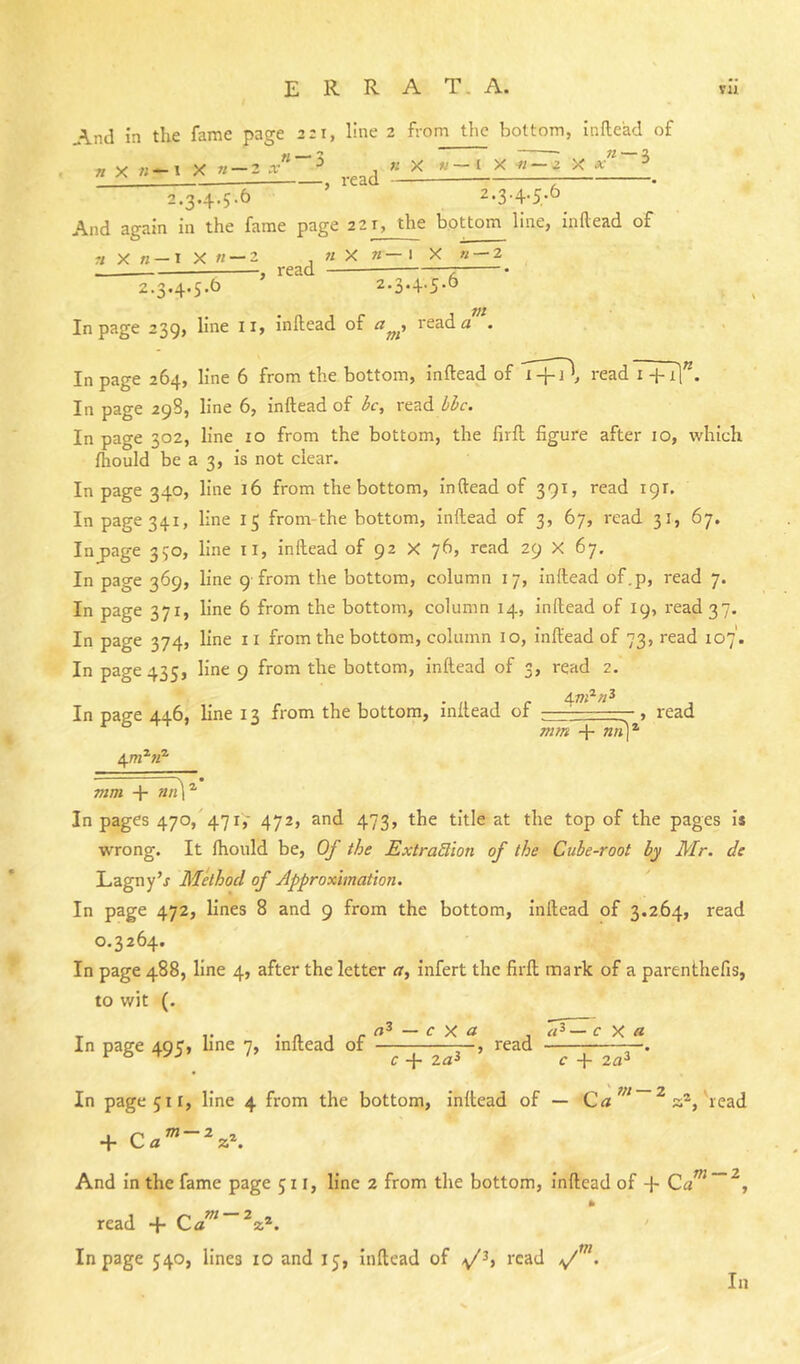 E R R A T A. vii
And in the ſame page 221, line 2 from the bottom, inſtead of
n × n—1 × n—2 x^{n—3} / 2.3.4.5.6, read n × n̅—̅1̅ × n̅—̅2̅ × x^{n—3} / 2.3.4.5.6.
And again in the ſame page 221, the bottom line, inſtead of
n × n—1 × n—2 / 2.3.4.5.6, read n × n̅—̅1̅ × n̅—̅2̅ / 2.3.4.5.6.
In page 239, line 11, inſtead of a_m, read a^m.
In page 264, line 6 from the bottom, inſtead of 1̅+̅1̅), read 1̅+̅1̅|^n.
In page 298, line 6, inſtead of bc, read bbc.
In page 302, line 10 from the bottom, the firſt figure after 10, which
ſhould be a 3, is not clear.
In page 340, line 16 from the bottom, inſtead of 391, read 191.
In page 341, line 15 from the bottom, inſtead of 3, 67, read 31, 67.
In page 350, line 11, inſtead of 92 × 76, read 29 × 67.
In page 369, line 9 from the bottom, column 17, inſtead of p, read 7.
In page 371, line 6 from the bottom, column 14, inſtead of 19, read 37.
In page 374, line 11 from the bottom, column 10, inſtead of 73, read 107.
In page 435, line 9 from the bottom, inſtead of 3, read 2.
In page 446, line 13 from the bottom, inſtead of 4m²n³ / m̅m̅ ̅+̅ ̅n̅n̅|², read
4m²n² / m̅m̅ ̅+̅ ̅n̅n̅|².
In pages 470, 471, 472, and 473, the title at the top of the pages is
wrong. It ſhould be, Of the Extraction of the Cube-root by Mr. de
Lagny's Method of Approximation.
In page 472, lines 8 and 9 from the bottom, inſtead of 3.264, read
0.3264.
In page 488, line 4, after the letter a, inſert the firſt mark of a parentheſis,
to wit (.
In page 495, line 7, inſtead of a³ — c × a / c + 2a³, read a̅³̅—̅ ̅c̅ × a / c + 2a³.
In page 511, line 4 from the bottom, inſtead of — Ca^{m—2}z², read
+ Ca^{m—2}z².
And in the ſame page 511, line 2 from the bottom, inſtead of + Ca^{m—2},
read + Ca^{m—2}z².
In page 540, lines 10 and 15, inſtead of √³, read √^m.
In